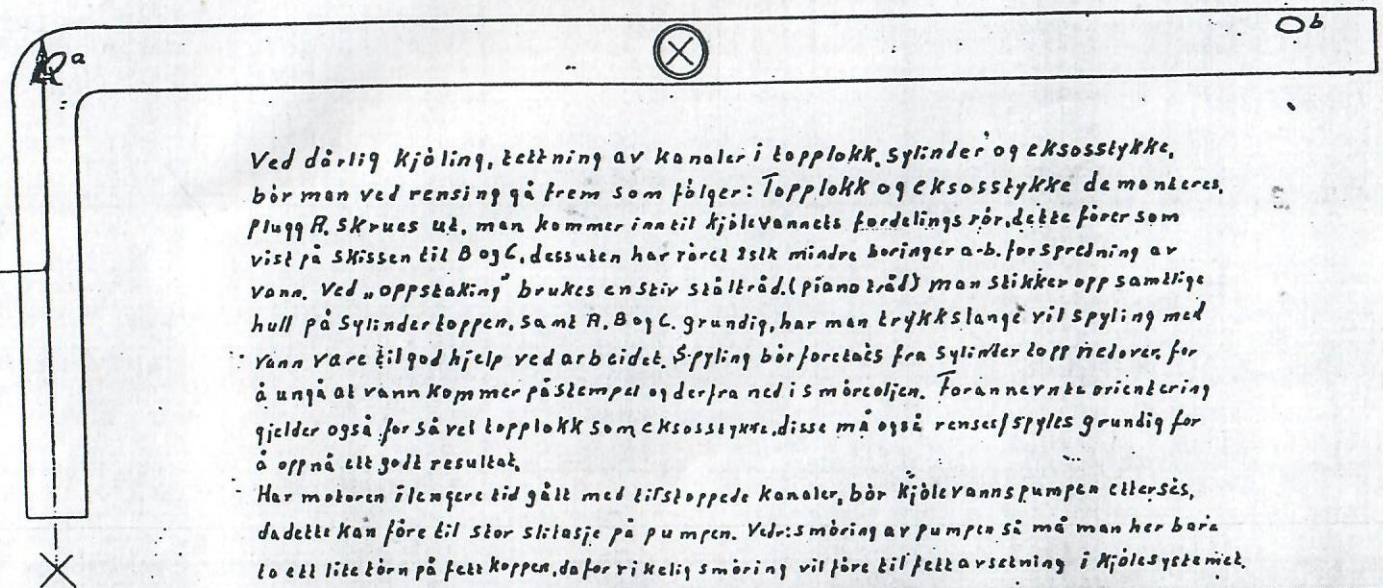 a
b
Ved dårlig kjöling, tettning av kanaler i topplokk, sylinder og eksosstykke,
bör man ved rensing gå frem som fölger: Topplokk og eksosstykke demonteres,
plugg A. skrues ut, man kommer inntil kjölevannets fordelings rör, dette förer som
vist på skissen til B og C, dessuten har röret 2stk mindre boringer a-b, for spredning av
vann. Ved „oppstaking" brukes en stiv ståltråd, (pianotråd) man stikker opp samtlige
hull på sylindertoppen, samt A. B og C. grundig, har man trykkslange vil spyling med
vann være til god hjelp ved arbeidet. Spyling bör foretaes fra sylinder topp nedover, for
å ungå at vann kommer på stempel og derfra ned i smöreoljen. Forannevnte orientering
gjelder også for såvel topplokk som eksosstykke, disse må også renses/spyles grundig for
å oppnå ett godt resultat.
Har motoren i lengere tid gått med tilstoppede kanaler, bör kjölevannspumpen etterses,
da dette kan före til stor slitasje på pumpen. Vedr: smöring av pumpen så må man her bare
ta ett lite törn på fettkoppen, da for rikelig smöring vil före til fettavsetning i kjölesystemet.